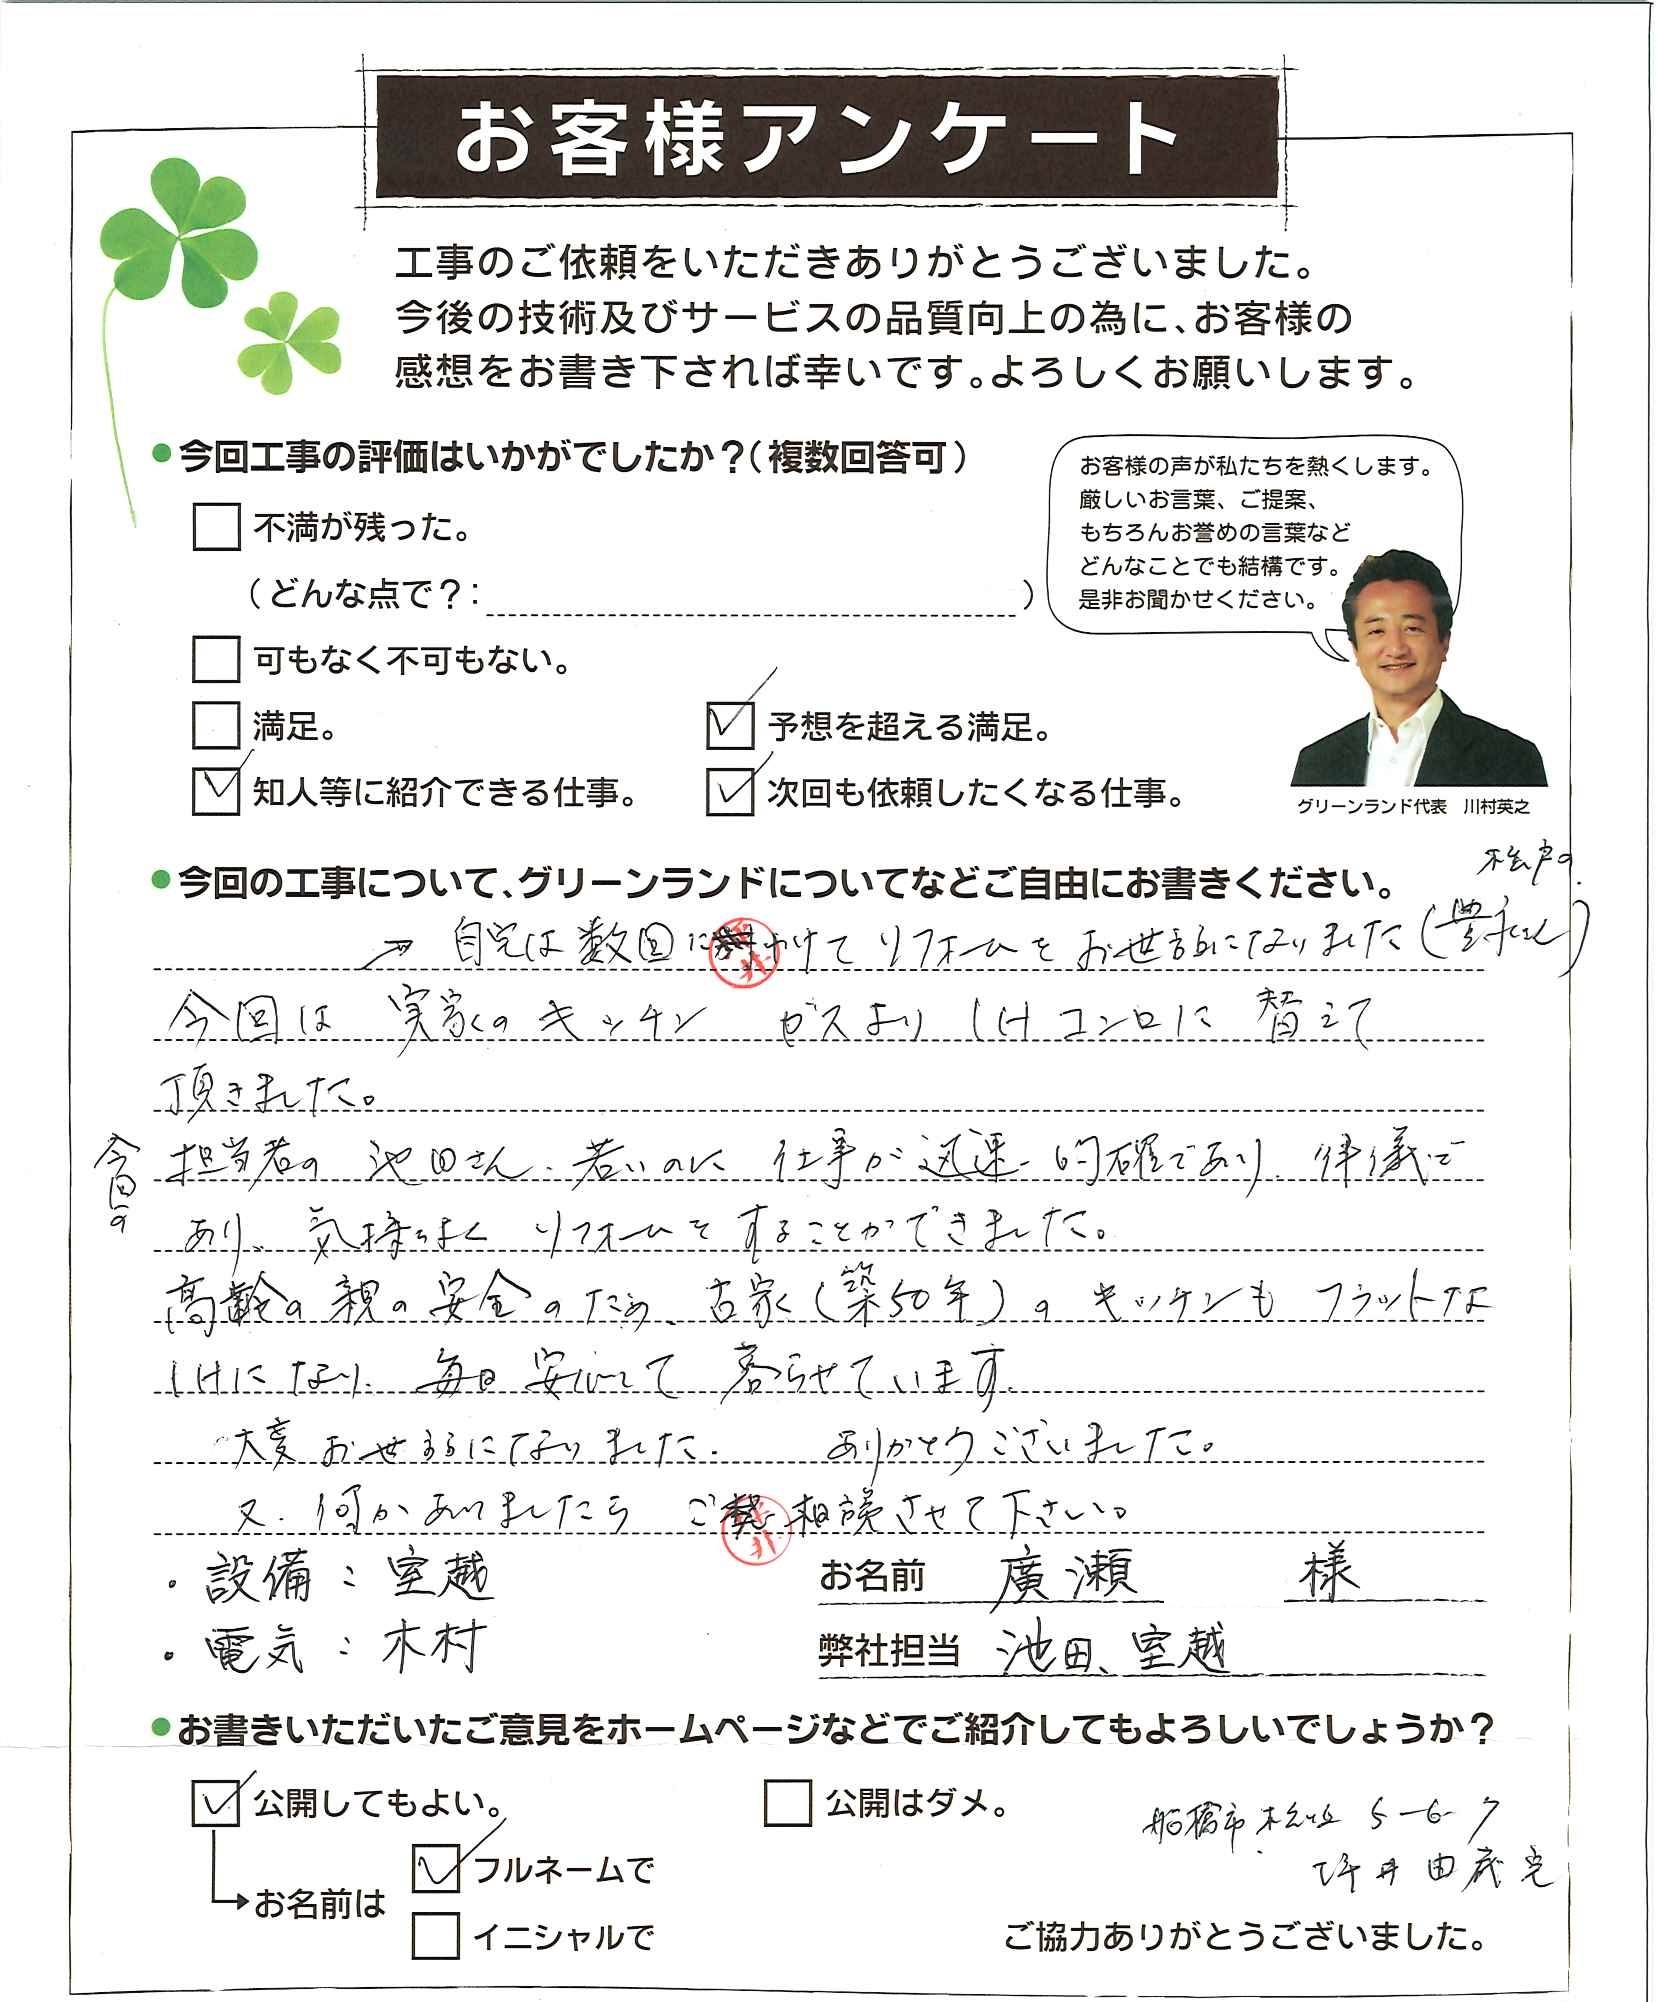 お客様アンケート
工事のご依頼をいただきありがとうございました。
今後の技術及びサービスの品質向上の為に、お客様の
感想をお書き下されば幸いです。よろしくお願いします。
●今回工事の評価はいかがでしたか?(複数回答可)
不満が残った。
(どんな点で?: )
可もなく不可もない。
満足。
予想を超える満足。
知人等に紹介できる仕事。
次回も依頼したくなる仕事。
お客様の声が私たちを熱くします。
厳しいお言葉、ご提案、
もちろんお誉めの言葉など
どんなことでも結構です。
是非お聞かせください。
グリーンランド代表 川村英之
●今回の工事について、グリーンランドについてなどご自由にお書きください。
松戸の
→ 自宅は数回にわけてリフォームをお世話になりました(豊永さん)
今回は 実家のキッチン ガスよりIHコンロに替えて
頂きました。
今回の
担当者の 池田さん、若いのに 仕事が迅速、的確であり、律儀で
あり、気持ちよく リフォームをすることができました。
高齢の親の安全のため、古家(築50年)のキッチンも フラットな
IHになり、毎日安心して 暮らせています。
大変お世話になりました。 ありがとうございました。
又、何かありましたら ご相談させて下さい。
・設備:室越
・電気:木村
お名前 廣瀬 様
弊社担当 池田、室越
●お書きいただいたご意見をホームページなどでご紹介してもよろしいでしょうか?
公開してもよい。
公開はダメ。
お名前は
フルネームで
イニシャルで
船橋市 5-6-7
坪井由
ご協力ありがとうございました。